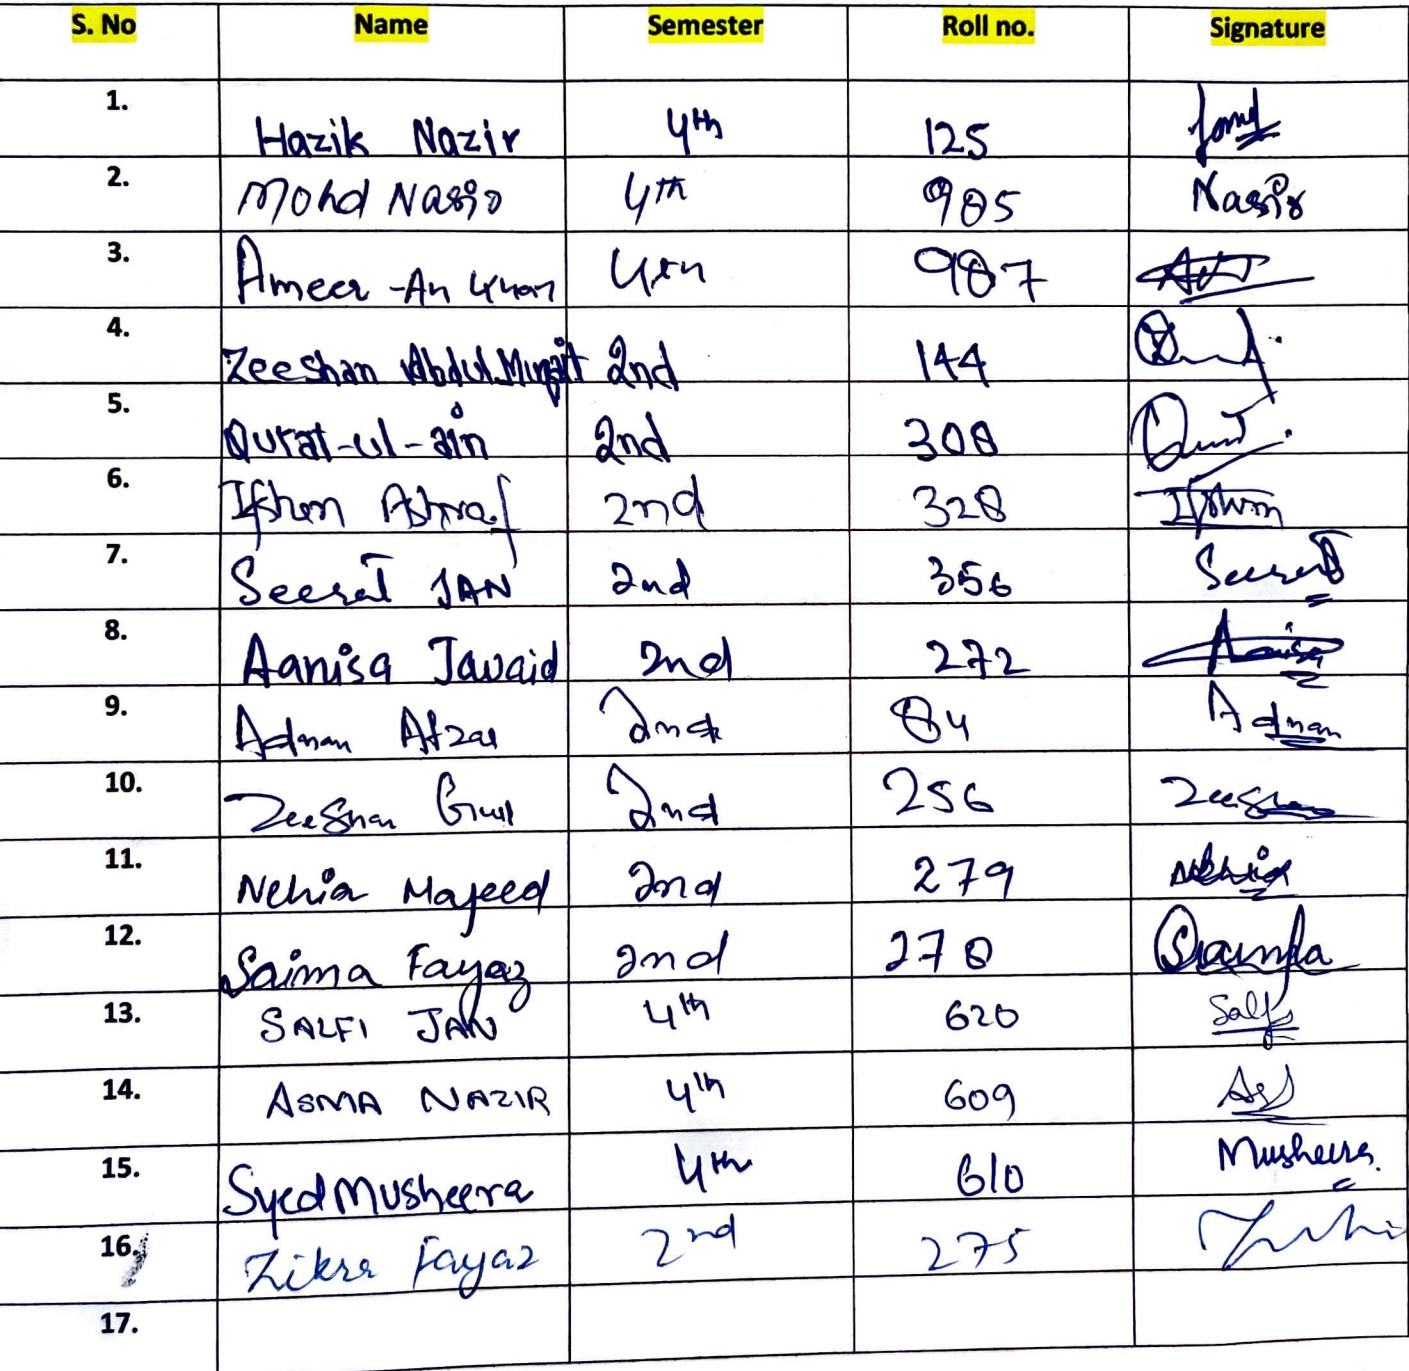 S. No Name Semester Roll no. Signature
1. Hazik Nazir 4th 125
2. Mohd Nasir 4th 905 Nasir
3. Ameer 4th 987
4. Zeeshan Abdul 2nd 144
5. Qurat-ul-ain 2nd 308
6. Ifshan Ashraf 2nd 328
7. Seerat JAN 2nd 356 Seerat
8. Aanisa Javaid 2nd 272 Aanisa
9. Adnan 2nd 84 Adnan
10. Zeeshan Gull 2nd 256 Zeeshan
11. Nehia Majeed 2nd 279 Nehia
12. Saima Fayaz 2nd 278
13. SALFI JAN 4th 620 Salfi
14. ASMA NAZIR 4th 609
15. Syed Musheera 4th 610 Musheera
16. Zikra Fayaz 2nd 275
17.